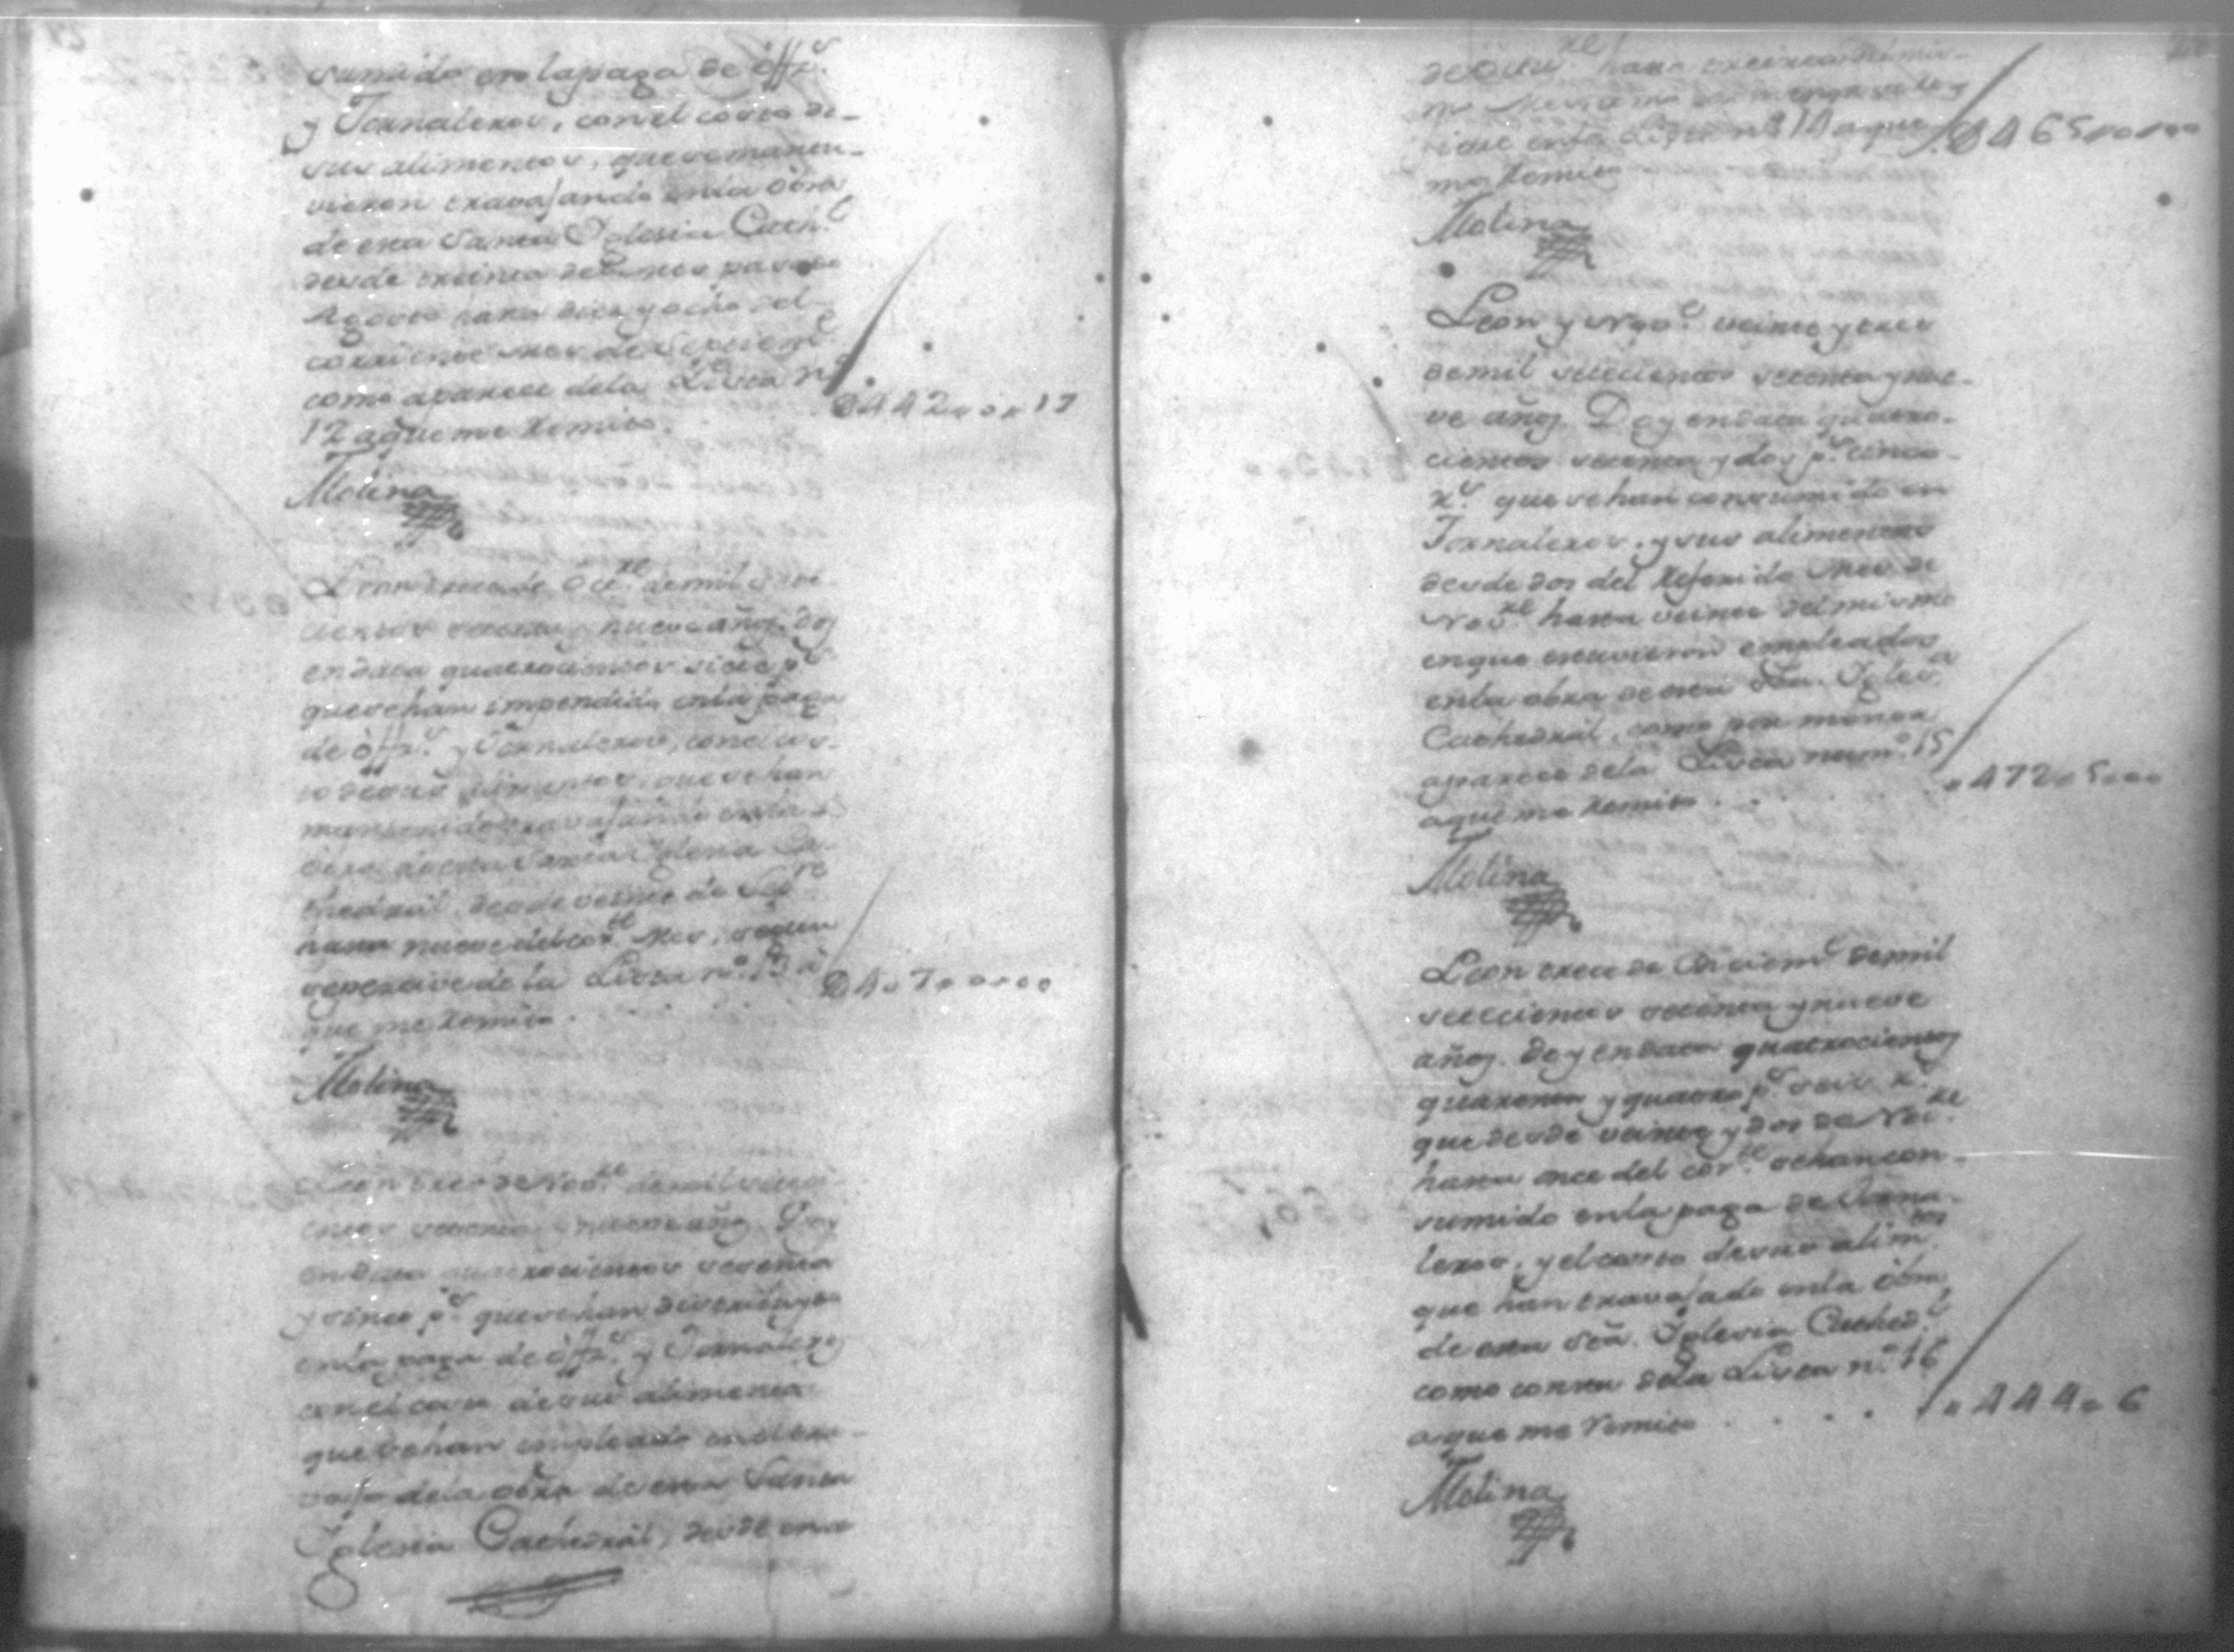 sumido en la paga de off.s
y Jornaleros, con el costo de
sus alimentos, que se mantu-
vieron travajando en la obra
de esta Santa Iglesia Cath.l
desde treinta del mes pasado
Agosto hasta diez y ocho del
corriente mes de Septiem.e
como aparece de la Lista n.o
12 a que me Remito.
442 " 0 " 17
Molina
Leon trece de Oct.re de mil sete-
cientos setenta y nueve años. Doy
en data quatrocientos siete p.s
que se han impendido en la paga
de off.s y Jornaleros, con el cos-
to de sus alimentos, que se han
mantenido travajando en la
obra de esta Santa Iglesia Ca-
thedral, desde veinte de Sep.re
hasta nueve del cor.te mes, segun
se percive de la Lista n.o 13 a
que me Remito
407 " 0 " 00
Molina
Leon tres de Nov.re de mil seteci-
entos setenta y nueve años. Doy
en data quatrocientos sesenta
y cinco p.s que se han distribuydo
en la paga de off.s y Jornaleros
con el costo de sus alimentos
que se han empleado en el tra-
vajo de la obra de esta Santa
Iglesia Cathedral, desde onse
de Oct.re hasta treinta del mis-
mo
en la Lista n.o 14 a que
me Remito
465 " 0 " 00
Molina
Leon y Nov.e veinte y tres
de mil setecientos setenta y nue-
ve años. Doy en data quatro-
cientos setenta y dos p.s cinco
r.s que se han consumido en
Jornaleros, y sus alimentos
desde dos del Referido mes de
Nov.re hasta veinte del mismo
en que estuvieron empleados
en la obra de esta Sta. Igles.a
Cathedral, como por menor
aparece de la Lista num.o 15
a que me Remito
472 " 5 " 00
Molina
Leon trece de Diciem.e de mil
setecientos setenta y nueve
años. Doy en data quatrocientos
quarenta y quatro p.s seis r.s
que desde veinte y dos de Nov.re
hasta once del cor.te se han con-
sumido en la paga de Jorna-
leros, y el costo de sus alim.tos
que han travajado en la obra
de esta Sta. Iglesia Cathed.l
como consta de la Lista n.o 16
a que me Remito
444 " 6
Molina